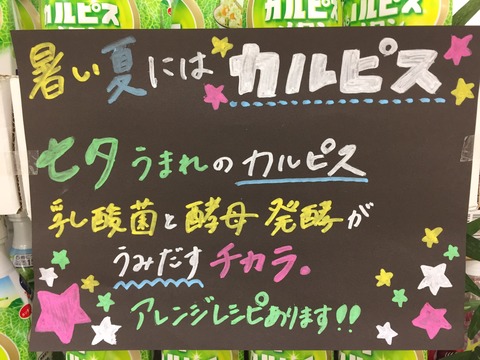 カルピス
暑い夏にはカルピス
七夕うまれのカルピス
乳酸菌と酵母発酵が
うみだすチカラ。
アレンジレシピあります!!